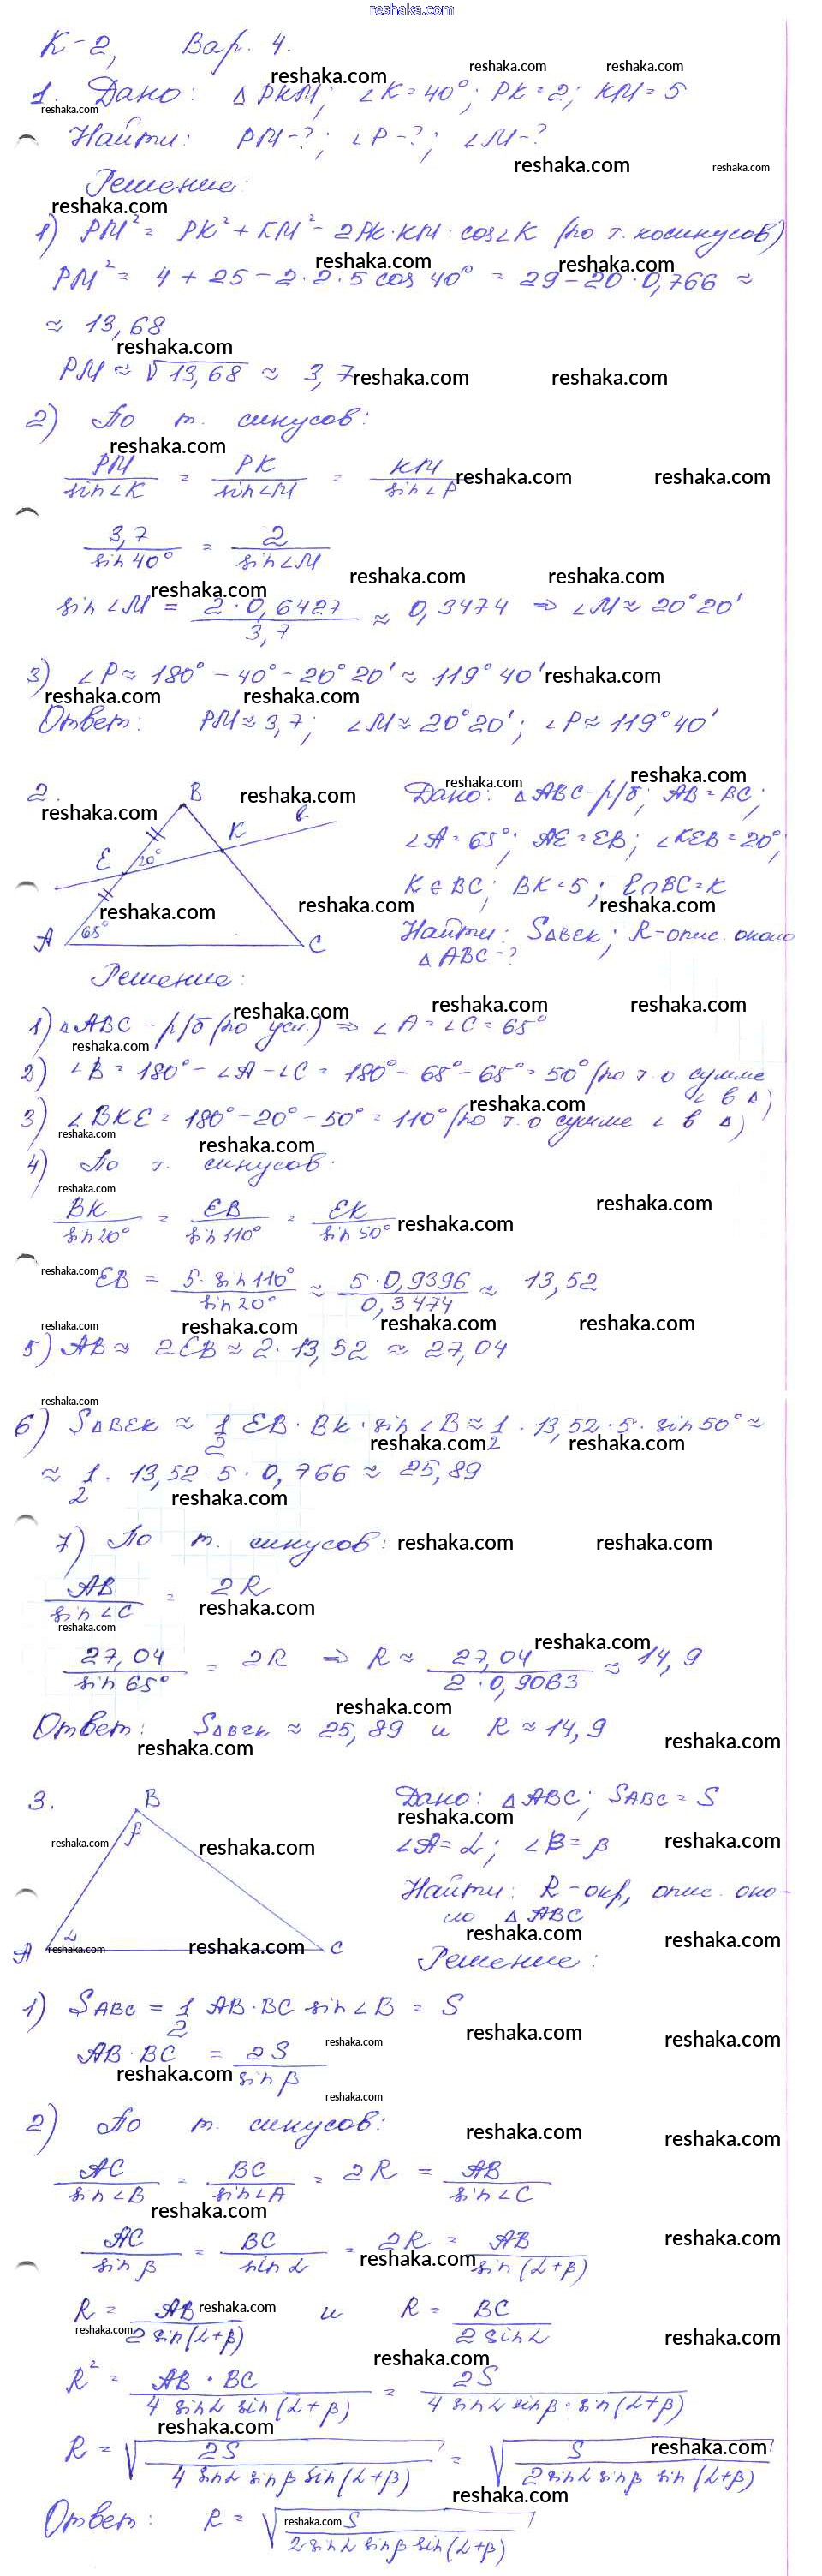 reshaka.com
К-2, Вар. 4.
1. Дано: △PKM; ∠K=40°; PK=2; KM=5
Найти: PM-?; ∠P-?; ∠M-?
Решение:
1) PM² = PK² + KM² - 2PK·KM·cos∠K (по т. косинусов)
PM² = 4 + 25 - 2·2·5 cos 40° = 29 - 20·0,766 ≈
≈ 13,68
PM ≈ √13,68 ≈ 3,7
2) По т. синусов:
PM/sin∠K = PK/sin∠M = KM/sin∠P
3,7/sin40° = 2/sin∠M
sin∠M = 2·0,6427/3,7 ≈ 0,3474 ⇒ ∠M ≈ 20°20'
3) ∠P ≈ 180° - 40° - 20°20' ≈ 119°40'
Ответ: PM ≈ 3,7; ∠M ≈ 20°20'; ∠P ≈ 119°40'
2. B K ℓ E 20° A 65° C
Дано: △ABC - р/б; AB = BC;
∠A = 65°; AE = EB; ∠KEB = 20°;
K ∈ BC; BK = 5; ℓ∩BC = K
Найти: S△BEK; R-опис. около
△ABC-?
Решение:
1) △ABC - р/б (по усл.) ⇒ ∠A = ∠C = 65°
2) ∠B = 180° - ∠A - ∠C = 180° - 65° - 65° = 50° (по т. о сумме
∠ в △)
3) ∠BKE = 180° - 20° - 50° = 110° (по т. о сумме ∠ в △)
4) По т. синусов.
BK/sin20° = EB/sin110° = EK/sin50°
EB = 5·sin110°/sin20° ≈ 5·0,9396/0,3474 ≈ 13,52
5) AB ≈ 2EB ≈ 2·13,52 ≈ 27,04
6) S△BEK ≈ 1/2 EB·BK·sin∠B ≈ 1/2·13,52·5·sin50° ≈
≈ 1/2·13,52·5·0,766 ≈ 25,89
7) По т. синусов:
AB/sin∠C = 2R
27,04/sin65° = 2R ⇒ R ≈ 27,04/2·0,9063 ≈ 14,9
Ответ: S△BEK ≈ 25,89 и R ≈ 14,9
3. B β A α C
Дано: △ABC; SABC = S
∠A = α; ∠B = β
Найти: R-окр, опис. око-
ло △ABC
Решение:
1) SABC = 1/2 AB·BC sin∠B = S
AB·BC = 2S/sinβ
2) По т. синусов:
AC/sin∠B = BC/sin∠A = 2R = AB/sin∠C
AC/sinβ = BC/sinα = 2R = AB/sin(α+β)
R = AB/2sin(α+β) и R = BC/2sinα
R² = AB·BC/4 sinα sin(α+β) = 2S/4 sinα sinβ·sin(α+β)
R = √2S/4 sinα sinβ sin(α+β) = √S/2 sinα sinβ sin(α+β)
Ответ: R = √S/2 sinα sinβ sin(α+β)